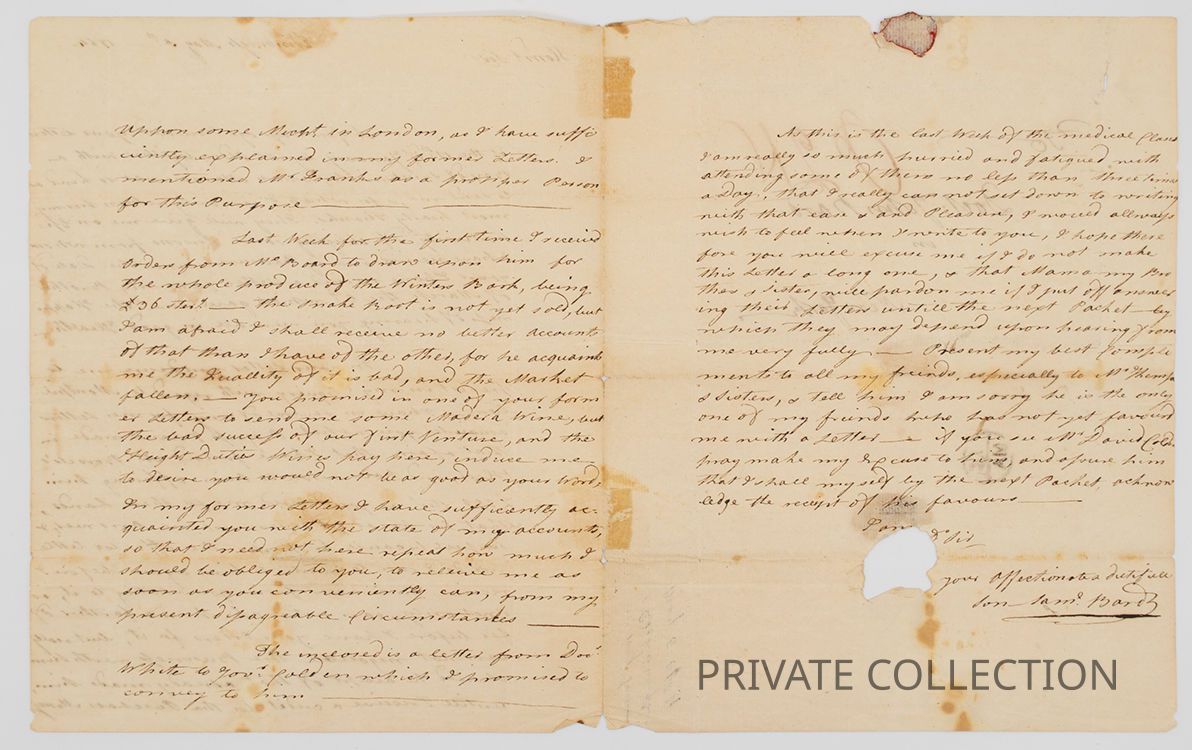 Uppon some Mercht. in London, as I have suffi
ciently explained in my former Letters. I
mentioned Mr. Franks as a propper Person
for this Purpose
Last Week for the first time I received
orders from Mr. Board to draw upon him for
the whole produce of the Winters Bark, being
£36 ster: — the snake Root is not yet sold, but
I am afraid I shall receive no better accounts
of that than I have of the other, for he acquaints
me the Quallity of it is bad, and the Market
fallen. — You promised in one of your form
er Letters to send me some Madeira Wine, but
the bad success of our first Venture, and the
Height Duties Wines pay here, induce me
to desire you would not be as good as your word,
In my former Letters I have sufficently ac-
quainted you with the state of my accounts,
so that I need not here repeat how much I
should be obliged to you, to relieve me as
soon as you conveniently can, from my
present disagreable Circumstances
The inclosed is a letter from Docr.
White to Govr. Colden which I promised to
convey to him
As this is the last Week of the medical Class
I am really so much hurried and fatigued with
attending some of them no less than three times
a Day, that I really can not set down to writing
with that ease & and Pleasure, I would allways
wish to feel when I write to you, I hope there
fore you will excuse me if I do not make
this Letter a long one, & that Mama my Bro
ther & sister, will pardon me if I put off answer
ing their Letters untill the next Packet — by
which they may depend upon hearing from
me very fully — Present my best Comple
ments to all my friends, especially to Mr.
& Sisters, & tell him I am sorry he is the only
one of my friends who has not yet favourd
me with a Letter — if you see Mr. David Cold.
pray make my Excuse to him and assure him
that I shall my self by the next Packet, acknow
ledge the receipt of his favours
I am Dr. Sir
your affectionate & dutifull
Son Saml. Bard
PRIVATE COLLECTION